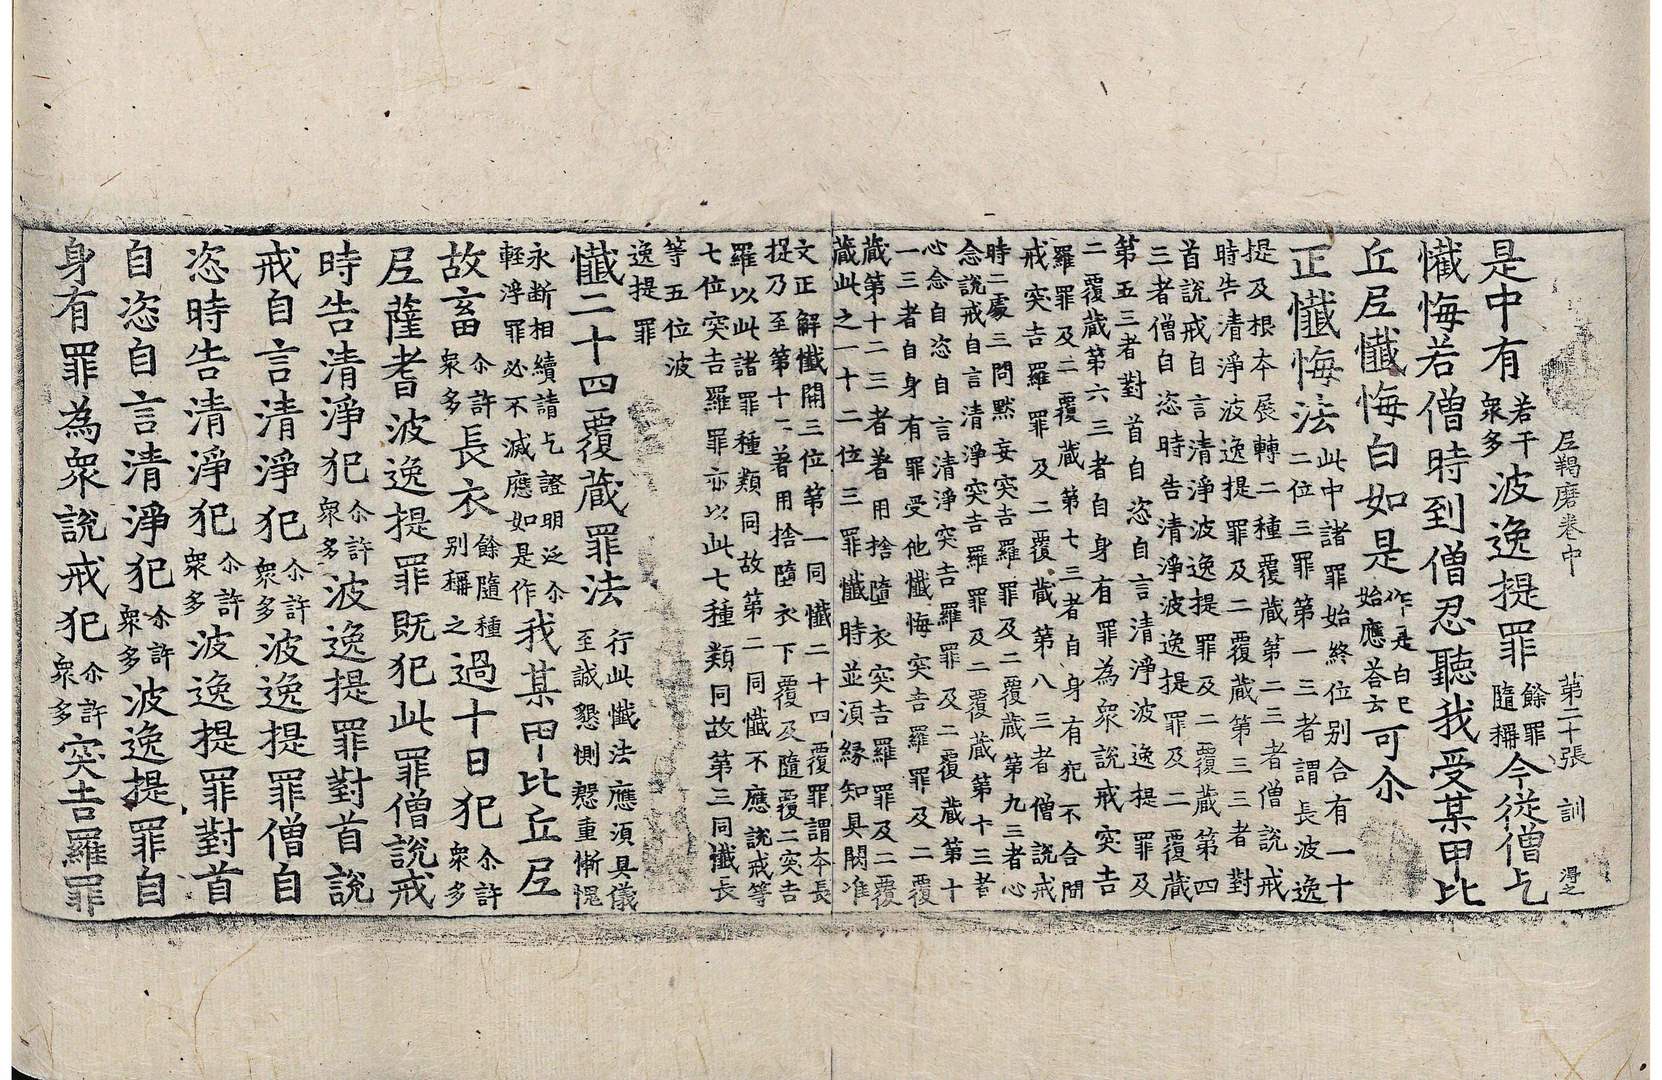 尼羯磨卷中　第二十張　訓　得之
是中有若干衆多波逸提罪餘罪隨稱今從僧乞
懺悔若僧時到僧忍聽我受某甲比
丘尼懺悔白如是作是白已始應荅云可尒
正懺悔法此中諸罪始終位別合有一十
二位三罪第一三者謂長波逸
提及根本展轉二種覆藏第二三者僧說戒
時告清淨波逸提罪及二覆藏第三三者對
首說戒自言清淨波逸提罪及二覆藏第四
三者僧自恣時告清淨波逸提罪及二覆藏
第五三者對首自恣自言清淨波逸提罪及
二覆藏第六三者自身有罪為衆說戒突吉
羅罪及二覆藏第七三者自身有犯不合問
戒突吉羅罪及二覆藏第八三者僧說戒
時二處三問默妄突吉羅罪及二覆藏第九三者心
念說戒自言清淨突吉羅罪及二覆藏第十三者
心念自恣自言清淨突吉羅罪及二覆藏第十
一三者自身有罪受他懺悔突吉羅罪及二覆
藏第十二三者著用捨墮衣突吉羅罪及二覆
藏此之一十二位三罪懺時並須緣知具闕准
文正解懺開三位第一同懺二十四覆罪謂本長
提乃至第十二著用捨墮衣下覆及隨覆二突吉
羅以此諸罪種類同故第二同懺不應說戒等
七位突吉羅罪亦以此七種類同故第三同懺長
等五位波
逸提罪
懺二十四覆藏罪法行此懺法應須具儀至誠懇惻慇重慚愧
永断相續請乞證明迄尒輕浮罪必不滅應如是作我某甲比丘尼
故畜尒許衆多長衣餘隨種別稱之過十日犯尒許衆多
尼薩耆波逸提罪既犯此罪僧說戒
時告清淨犯尒許衆多波逸提罪對首說
戒自言清淨犯尒許衆多波逸提罪僧自
恣時告清淨犯尒許衆多波逸提罪對首
自恣自言清淨犯尒許衆多波逸提罪自
身有罪為衆說戒犯尒許衆多突吉羅罪